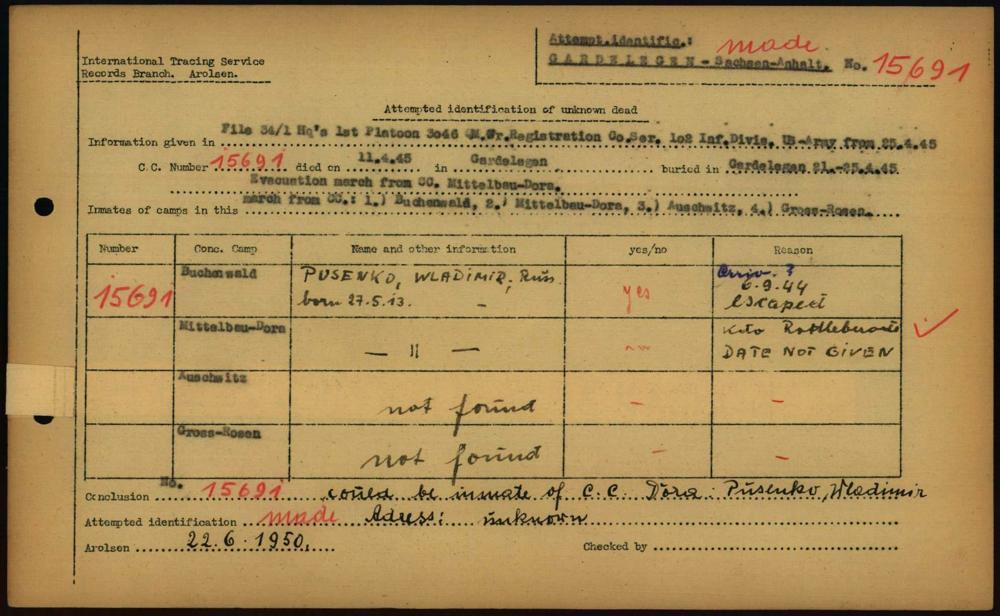 Attempt.identific.: made
GARDELEGEN - Sachsen-Anhalt. No. 15691
International Tracing Service
Records Branch. Arolsen.
Attempted identification of unknown dead
Information given in File 34/1 Hq's 1st Platoon 3046 QM.Gr.Registration Co.Ser. 102 Inf.Divis. US-Army from 25.4.45
C.C. Number 15691 died on 11.4.45 in Gardelegen buried in Gardelegen 21.-25.4.45
Evacuation march from CC. Mittelbau-Dora.
Inmates of camps in this march from CC.: 1.) Buchenwald, 2.) Mittelbau-Dora, 3.) Auschwitz, 4.) Gross-Rosen.
Number Conc. Camp Name and other information yes/no Reason
15691 Buchenwald PUSENKO, WLADIMIR, Russ. born 27.5.13. - yes ? 6.9.44 escaped
Mittelbau-Dora — 11 — DATE NOT GIVEN
Auschwitz not found - -
Gross-Rosen not found - -
Conclusion No. 15691 could be inmate of C.C. Dora: Pusenko, Wladimir
Attempted identification made Adress: unknown
Arolsen 22.6.1950. Checked by